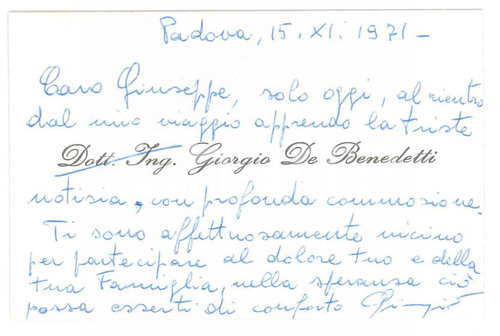 Padova, 15. XI. 1971 -
Caro Giuseppe, solo oggi, al rientro
dal mio viaggio apprendo la triste
Dott. Ing. Giorgio De Benedetti
notisia, con profonda commosione.
Ti sono affettuosamente vicino
per partecipare al dolore tuo e della
tua Famiglia, nella speransa ciò
possa esserti di conforto Giorgio